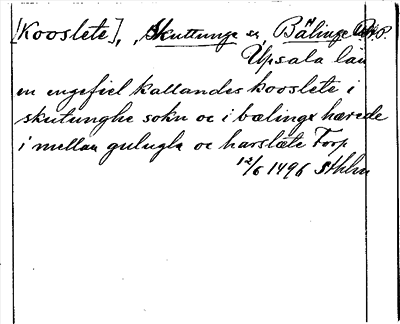 [Kooslete], Skuttunge sn, Bälinge
Upsala län
en engefiel kallandes kooslete i
skutunghe sokn oc i bælinge hærede
i mellan gulugla oc harslæte Torp
12/6 1496 Sthlm